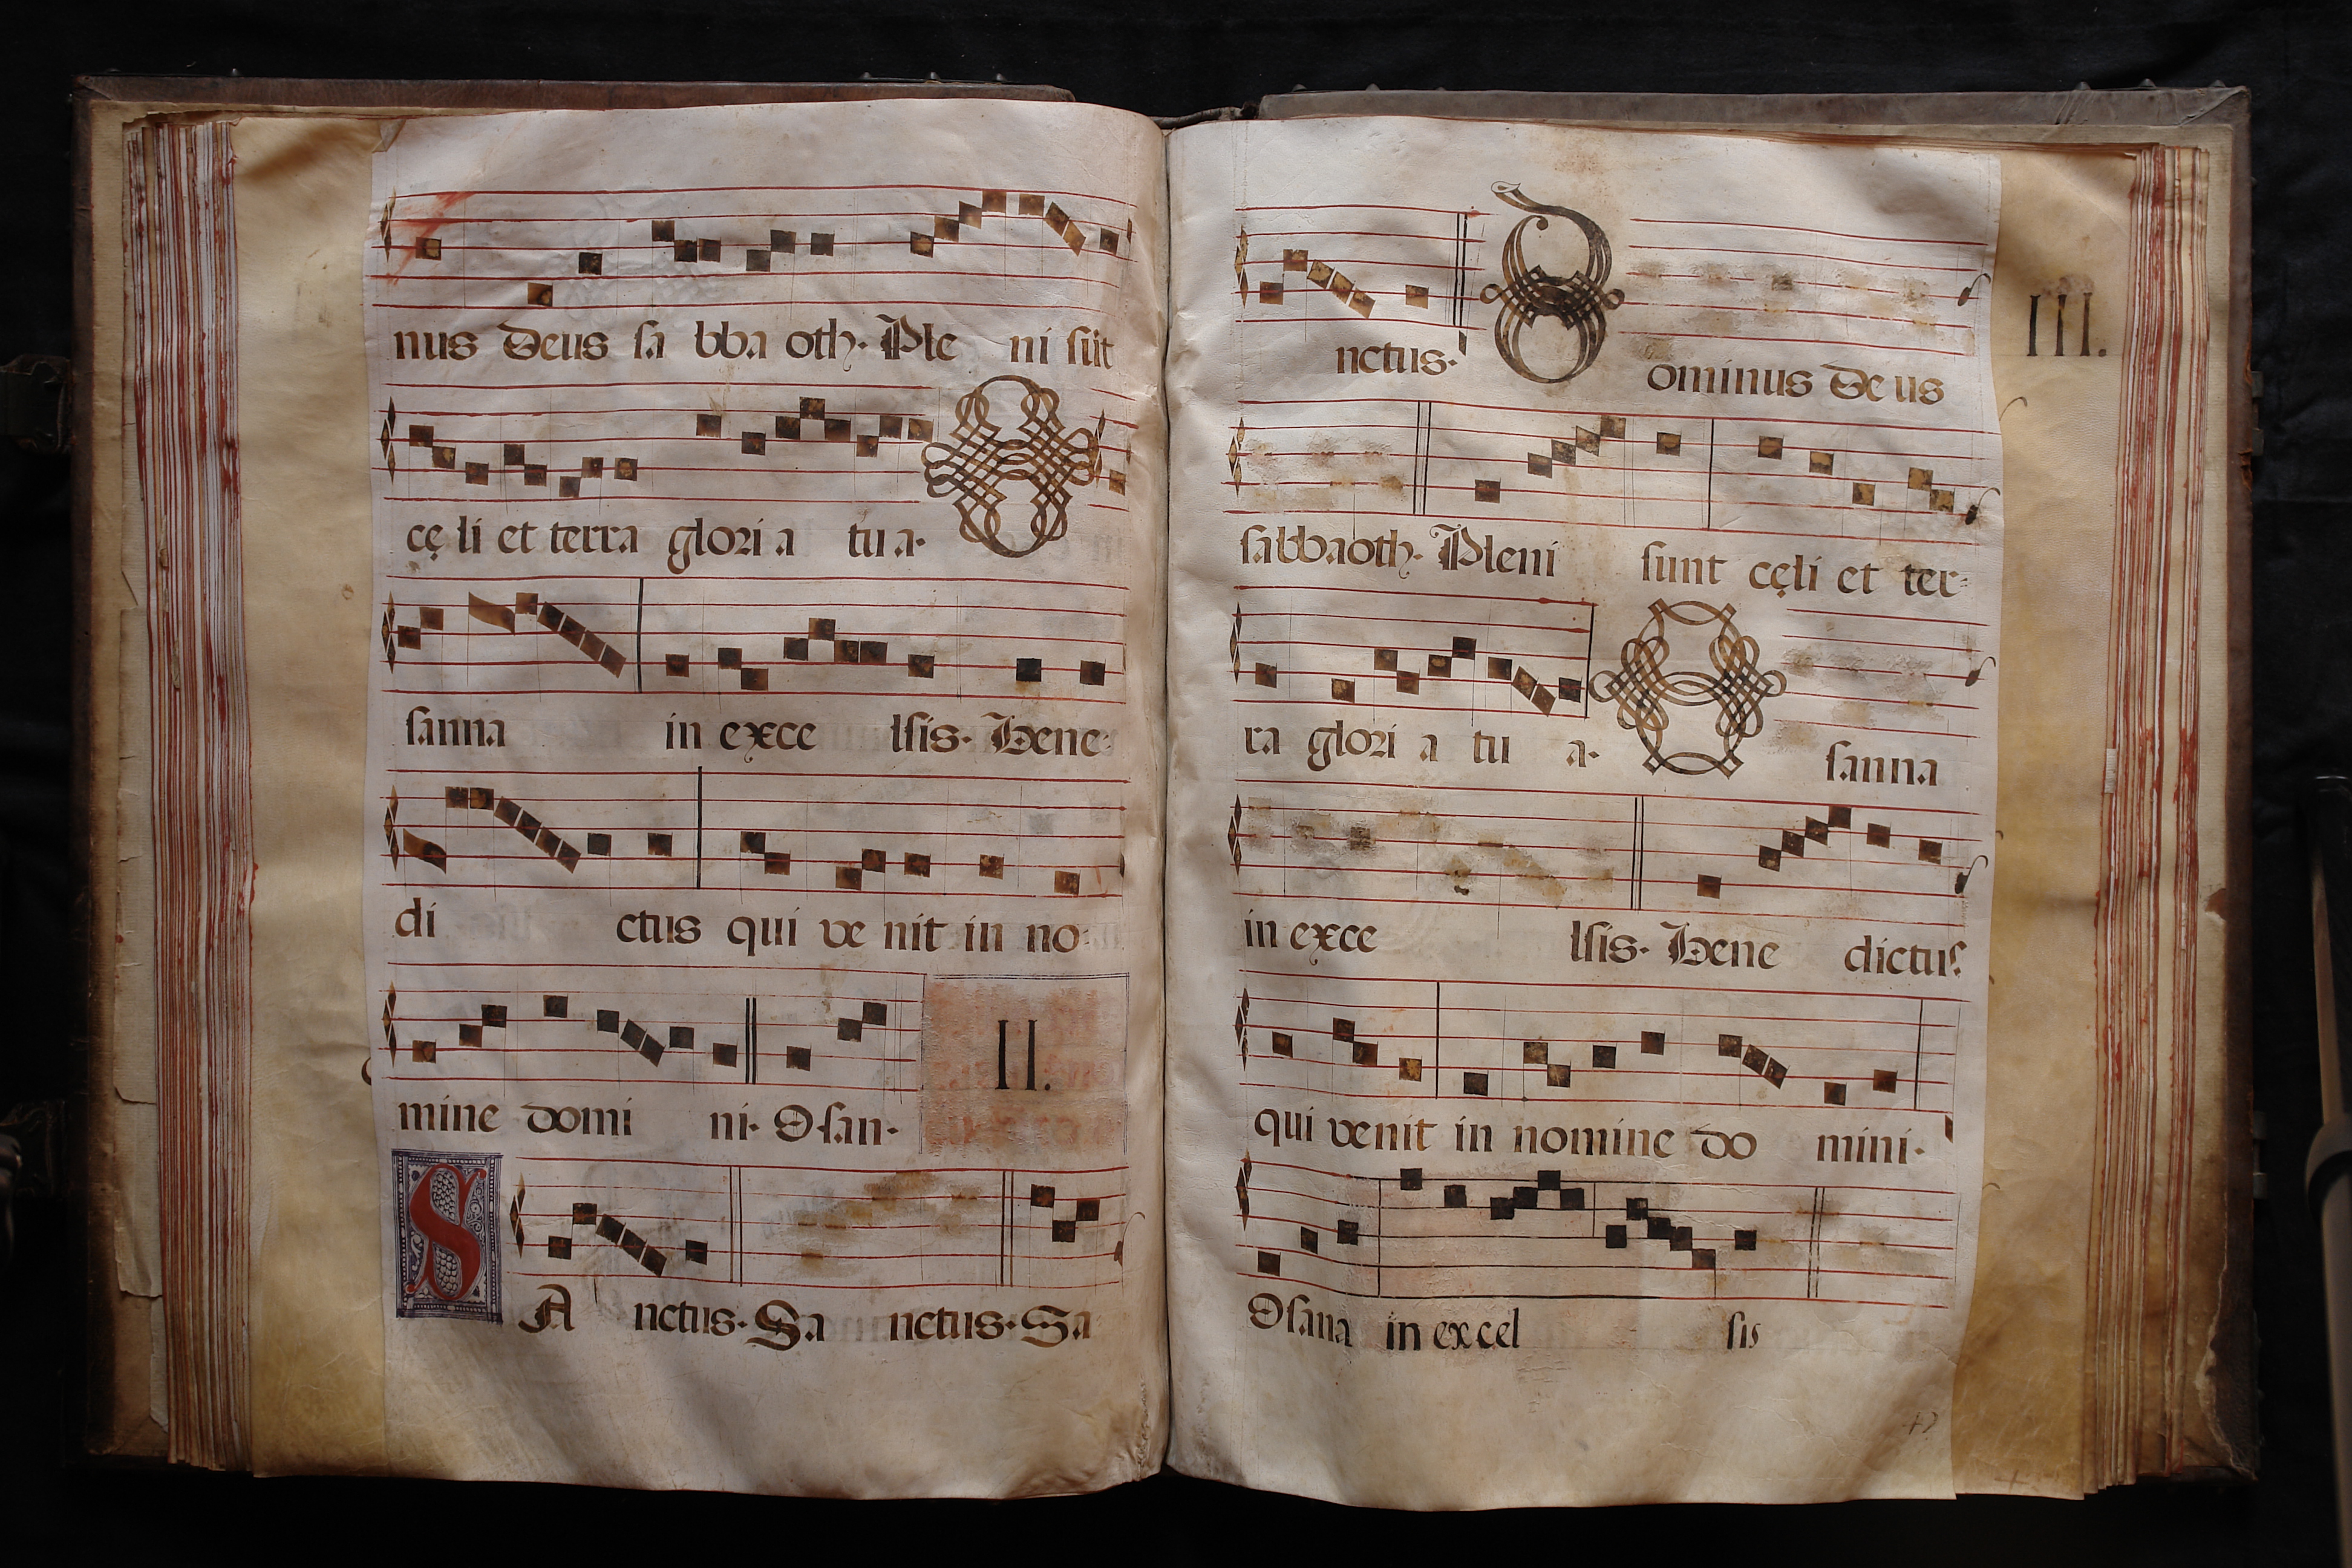 nus Deus sa bba oth. Ple ni sūt
cę li et terra glori a tu a. O
sanna in exce lsis. Bene
di ctus qui ve nit in no
mine domi ni. Osan.
II.
SA nctus. Sa nctus. Sa
nctus. Dominus Deus
III.
sabbaoth. Pleni sunt cęli et ter=
ra glori a tu a. O sanna
in exce lsis. Bene dictus
qui venit in nomine do mini.
Osana in excel sis